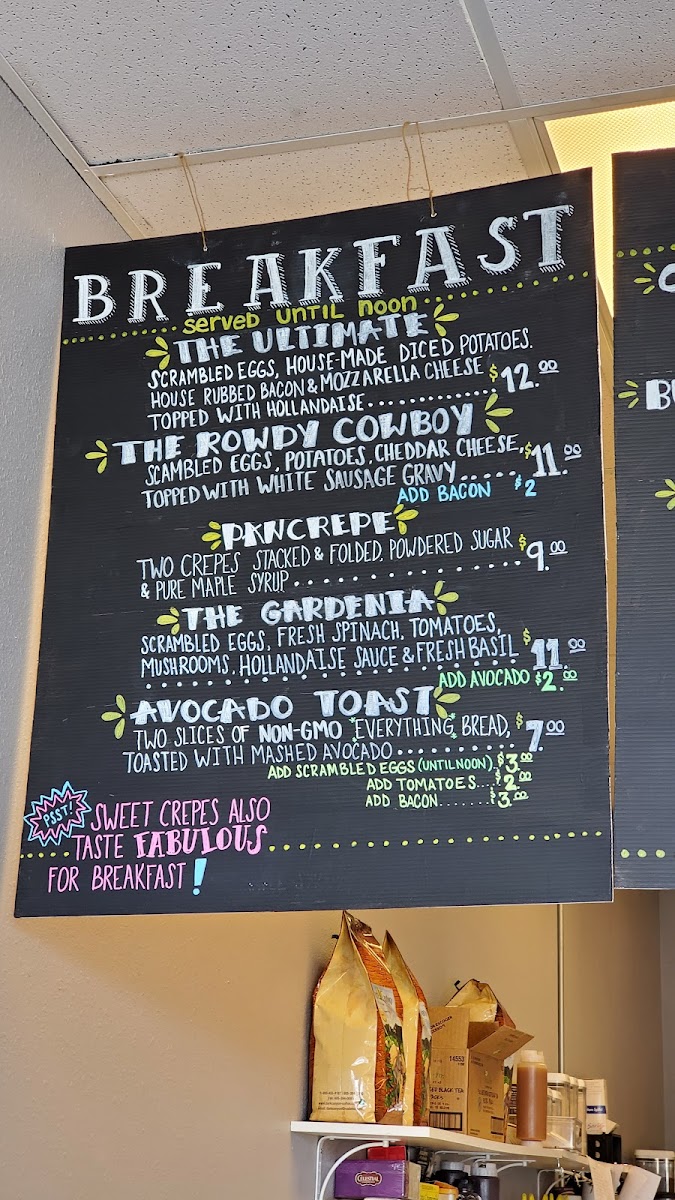 BREAKFAST
served UNTIL noon
THE ULTIMATE
SCRAMBLED EGGS, HOUSE-MADE DICED POTATOES.
HOUSE RUBBED BACON & MOZZARELLA CHEESE $12.00
TOPPED WITH HOLLANDAISE..............
THE ROWDY COWBOY
SCAMBLED EGGS, POTATOES, CHEDDAR CHEESE, $11.00
TOPPED WITH WHITE SAUSAGE GRAVY.....
ADD BACON $2
PANCREPE
TWO CREPES STACKED & FOLDED, POWDERED SUGAR $9.00
& PURE MAPLE SYRUP..................
THE GARDENIA
SCRAMBLED EGGS, FRESH SPINACH, TOMATOES,
MUSHROOMS, HOLLANDAISE SAUCE & FRESH BASIL $11.00
ADD AVOCADO $2.00
AVOCADO TOAST
TWO SLICES OF NON-GMO "EVERYTHING" BREAD, $7.00
TOASTED WITH MASHED AVOCADO..........
ADD SCRAMBLED EGGS (UNTIL NOON). $3.00
ADD TOMATOES.... $2.00
ADD BACON....... $3.00
PSST! SWEET CREPES ALSO
TASTE FABULOUS
FOR BREAKFAST!
14553
BLACK TEA
CELESTIAL